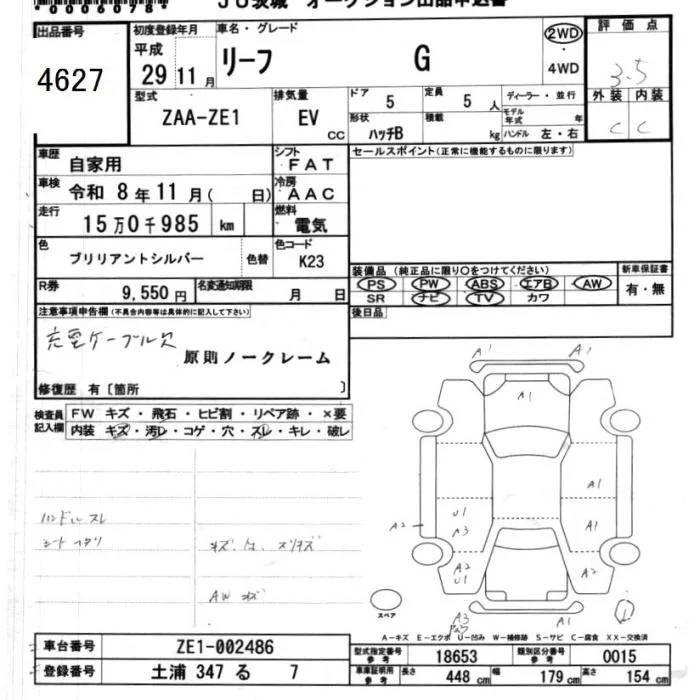 *00060784*
JU茨城 オークション出品申込書
出品番号
4627
初度登録年月
平成
29 11 月
車名・グレード
リーフ G
2WD
・
4WD
評価点
3.5
外装 内装
C C
型式
ZAA-ZE1
排気量
EV
CC
ドア 5
定員 5 人
形状 ハッチB
積載 kg
ディーラー・並行
モデル年式 年
ハンドル 左・右
車歴 自家用
シフト FAT
セールスポイント(正常に機能するものに限ります)
車検 令和 8年11月( 日)
冷房 AAC
走行 15万0千985 km
燃料 電気
色 ブリリアントシルバー 色替
色コード K23
装備品 (純正品に限り○をつけてください)
PS PW ABS エアB AW
SR ナビ TV カワ
新車保証書
有・無
R券 9,550 円
名変通知期限 月 日
後日品
注意事項申告欄(不具合内容等は具体的に記入して下さい)
充電ケーブル欠
原則ノークレーム
修復歴 有〔箇所 〕
検査員記入欄
FW キズ・飛石・ヒビ割・リペア跡・×要
内装 キズ・汚レ・コゲ・穴・スレ・キレ・破レ
ハンドルスレ
シートヘタリ
キズ、凹、スリキズ
AW キズ
A1 A1
A1
A1
U1
A3
A1
A2
A2
U1
A2
A3
A1
スペア
A-キズ E-エクボ U-凹み W-補修跡 S-サビ C-腐食 XX-交換済
車台番号 ZE1-002486
登録番号 土浦 347 る 7
型式指定番号 参考 18653
類別区分番号 参考 0015
車庫証明用 参考
長さ 448 cm 幅 179 cm 高さ 154 cm